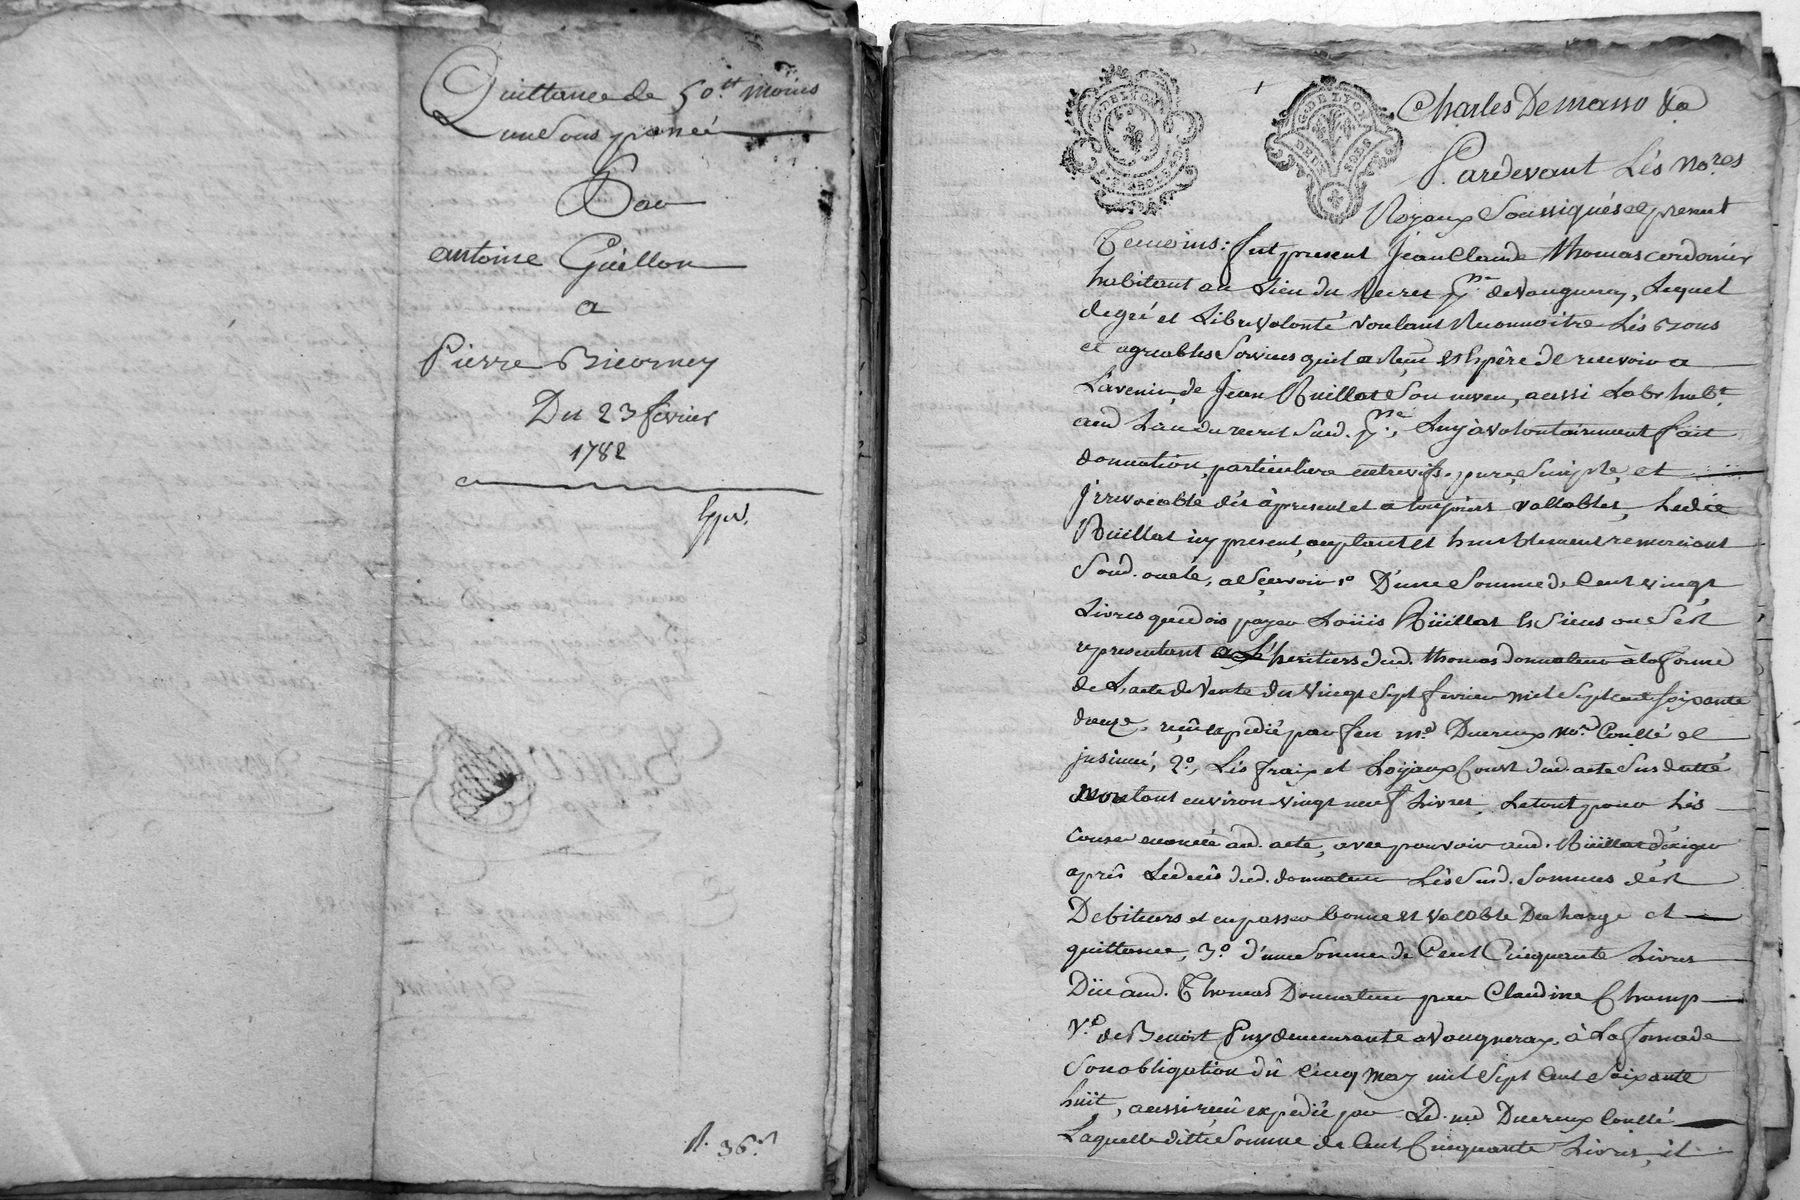 Quittance de 50.tt moins
une Sous passée
Par
antoine Guillon
a
Pierre Bicorney
Du 23 fevrier
1782
Exped.
R. 36.s
G. DE LYON
G. DE LYON
DEUX SOLS
Charles Demasso &a
Pardevant Les No.res
Royaux Soussignés et present
Temoins: fut present Jean Claude Thomas cordonier
habitant au Lieu du Recret p.sse de Vaugneray, Lequel
de gré et Libre Volonté voulant Reconnoitre Les Bons
et agreables Services quil a Reçu et Espère de recevoir a
L'avenir de Jean Ruillat Son neveu, aussi Labr hab.t
aud Lieu du recret Sud. p.sse, Luy à volontairement fait
donnation particuliere entrevifs, pure, Simple, et
Irrevocable dès à present et a toujours vallable, Ledit
Ruillat icy present, acceptant et humblement remerciant
Sond. oncle, a Sçavoir 1.o D'une Somme de Cent vingt
Livres que dois payer Loüis Rüillat les Siens ou Se
representant heritiers dud. Thomas donnateur à la forme
de L'acte de Vente du Vingt Sept fevrier mil Sept cent soixante
douze, reçû expedié par feu m.e Ducreux no.re Conllé et
insinué, 2.o, Les fraix et Loyaux Coust dud. acte Sus datté
Montant environ vingt neuf Livres, Le tout pour Les
Cause enoncée aud. acte, avec pouvoir aud. Rüillat d'exiger
après Le decès dud. donnateur Les Sud. Sommes des
Debiteurs et en passer bonne et valable Decharge et
quittance, 3.o d'une Somme de Cent Cinquante Livres
Düe aud. Thomas Donnateur par Claudine Champ
V.e de Benoit Puy demeurante a Vaugneray, à La forme de
Son obligation du cinq May mil Sept Cent Soixante
huit, aussi reçû expedié par Led. me Ducreux Conllé
Laquelle ditte Somme de Cent Cinquante Livres, il